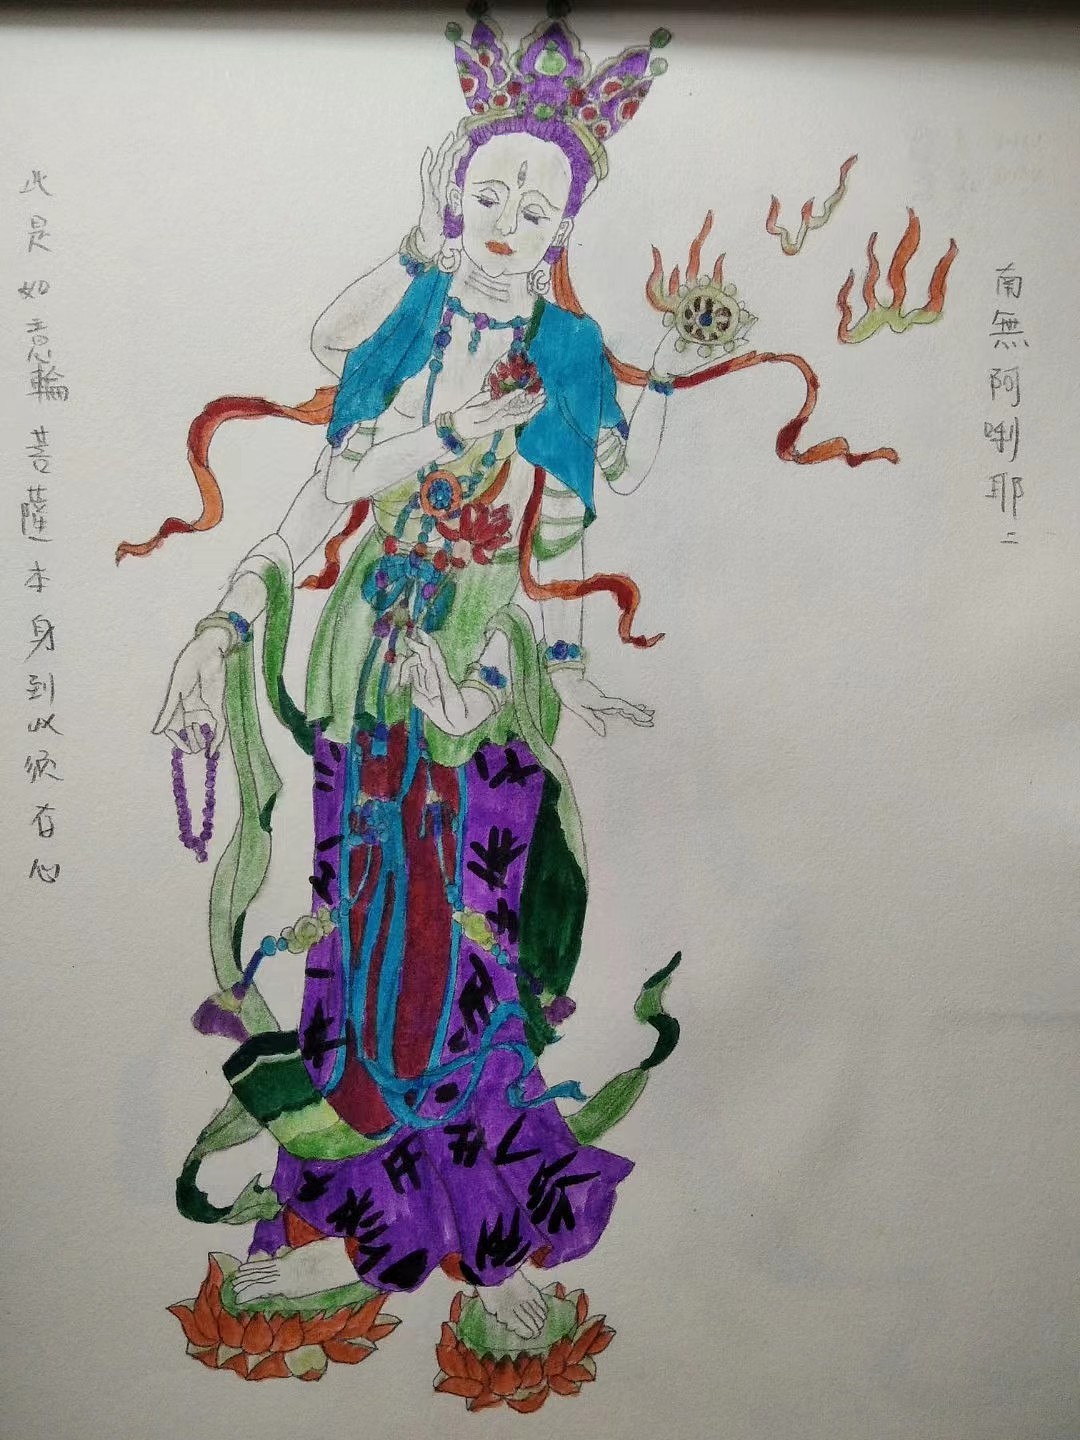 南無阿唎耶二
此是如意輪菩薩本身到此須存心